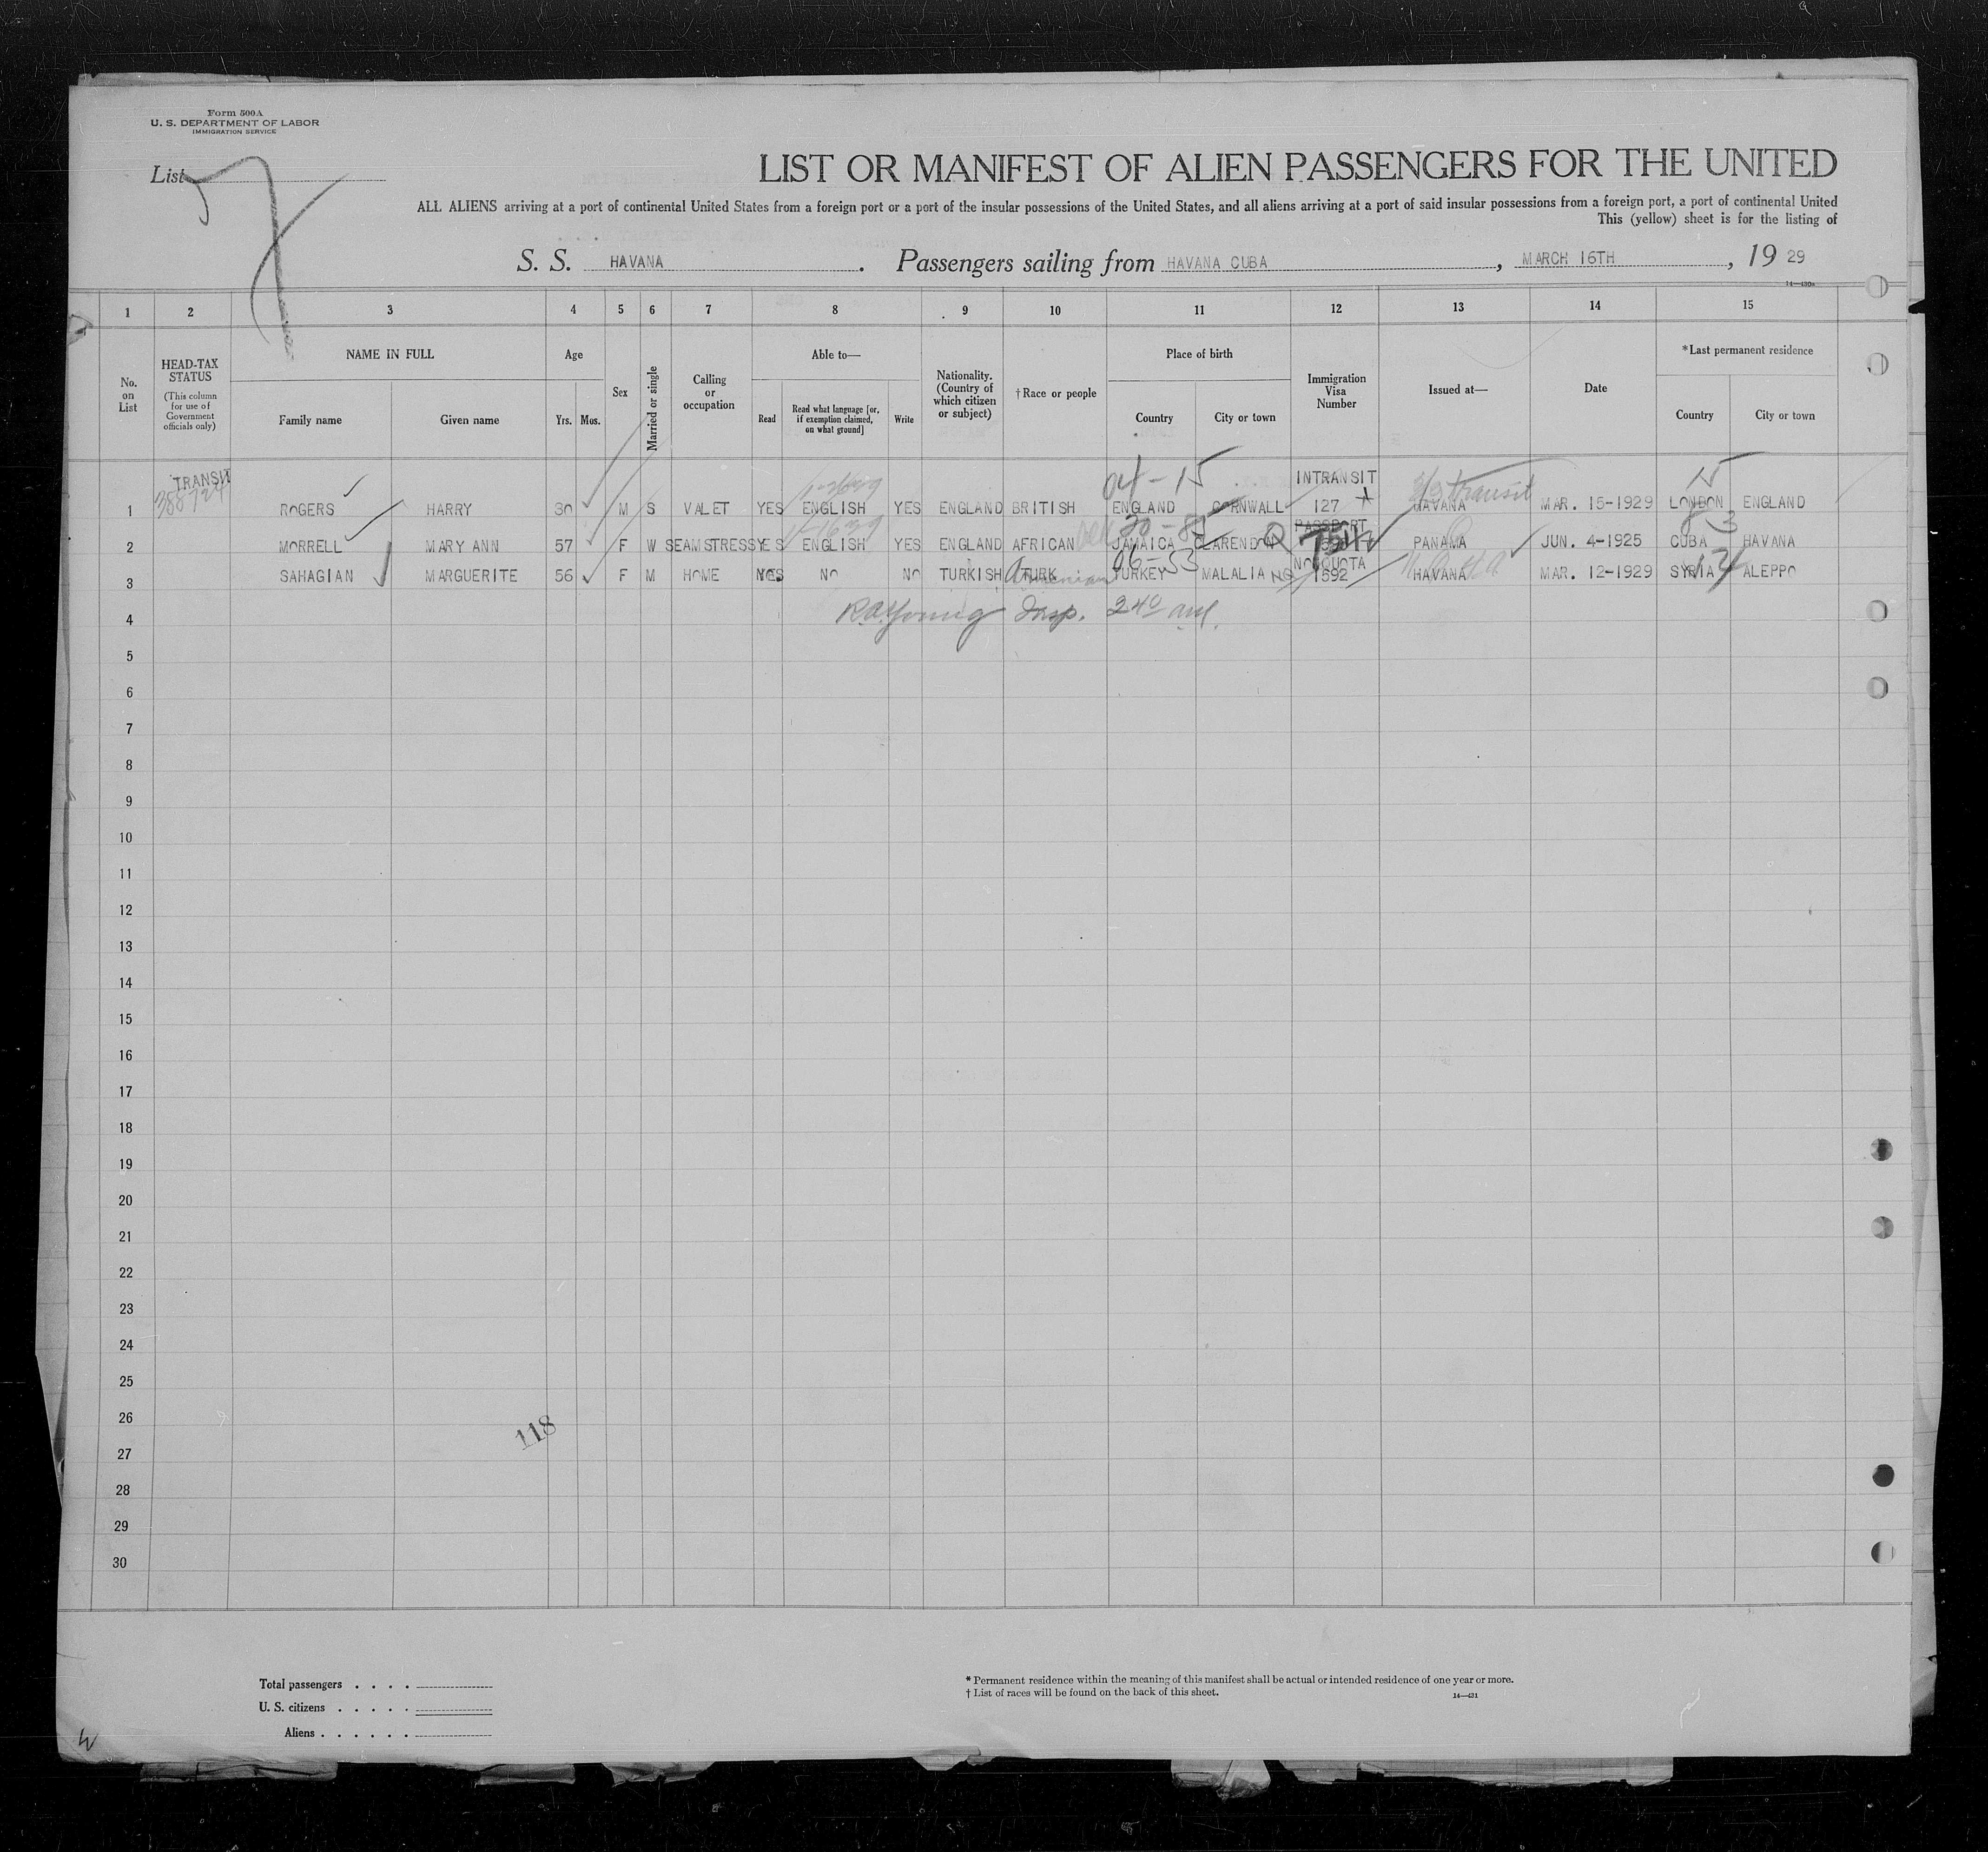 Form 500A
U. S. DEPARTMENT OF LABOR
IMMIGRATION SERVICE
List 7
LIST OR MANIFEST OF ALIEN PASSENGERS FOR THE UNITED
ALL ALIENS arriving at a port of continental United States from a foreign port or a port of the insular possessions of the United States, and all aliens arriving at a port of said insular possessions from a foreign port, a port of continental United
This (yellow) sheet is for the listing of
S. S. HAVANA . Passengers sailing from HAVANA CUBA , MARCH 16TH , 19 29
14—430a
1 2 3 4 5 6 7 8 9 10 11 12 13 14 15
No. on List
HEAD-TAX STATUS (This column for use of Government officials only)
NAME IN FULL
Family name Given name
Age
Yrs. Mos.
Sex
Married or single
Calling or occupation
Able to—
Read Read what language [or, if exemption claimed, on what ground] Write
Nationality. (Country of which citizen or subject)
† Race or people
Place of birth
Country City or town
Immigration Visa Number
Issued at—
Date
*Last permanent residence
Country City or town
TRANSIT 04-15 INTRANSIT Transit 15
388724
1 ROGERS HARRY 30 M S VALET YES ENGLISH YES ENGLAND BRITISH ENGLAND CORNWALL 127 HAVANA MAR. 15-1929 LONDON ENGLAND
PASSPORT
2 MORRELL MARY ANN 57 F W SEAMSTRESS YES ENGLISH YES ENGLAND AFRICAN JAMAICA CLARENDON PANAMA JUN. 4-1925 CUBA HAVANA
06-53 NO QUOTA
3 SAHAGIAN MARGUERITE 56 F M HOME NO NO TURKISH TURK Armenian TURKEY MALALIA 1592 HAVANA MAR. 12-1929 SYRIA ALEPPO
4 R A Young Insp. 240 am.
5
6
7
8
9
10
11
12
13
14
15
16
17
18
19
20
21
22
23
24
25
26
118
27
28
29
30
Total passengers . . . .
U. S. citizens . . . . .
Aliens . . . . . .
* Permanent residence within the meaning of this manifest shall be actual or intended residence of one year or more.
† List of races will be found on the back of this sheet.
14—431
W